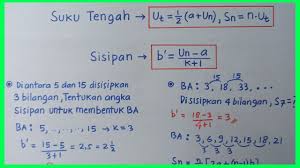 Suku Tengah → Ut = 1/2 (a+Un), Sn = n·Ut
Sisipan → b' = Un-a / k+1
• Diantara 5 dan 15 disisipkan
3 bilangan, Tentukan angka
Sisipan untuk membentuk BA
BA : 5, .., .., .., 15 → k=3
b' = 15-5 / 3+1 = 10/4 = 2,5
15 15
• BA : 3, 18, 33, ...
Disisipkan 4 bilangan, S7 =
b' = 18-3 / 4+1 = 3
BA : 3, 6, 9, 12, 15, 18, 21